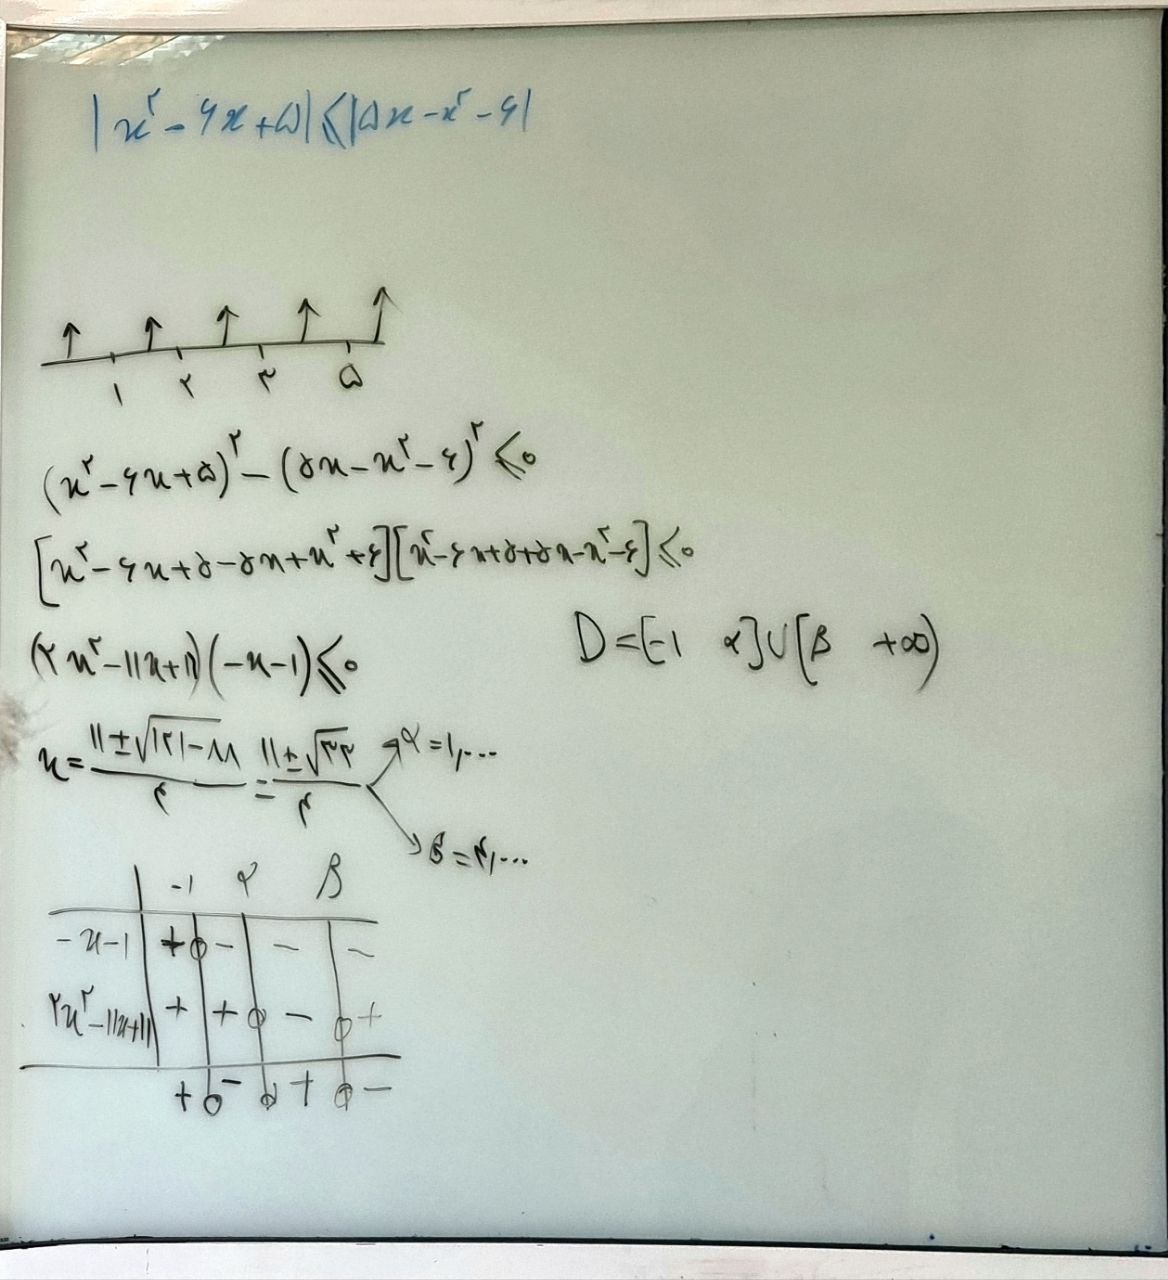 |x² - ۶x + ۵| ≤ |۵x - x² - ۶|
۱ ۲ ۳ ۵
(x² - ۶x + ۵)² - (۵x - x² - ۶)² ≤ ۰
[x² - ۶x + ۵ - ۵x + x² + ۶][x² - ۶x + ۵ + ۵x - x² - ۶] ≤ ۰
(۲x² - ۱۱x + ۱۱)(-x - ۱) ≤ ۰
D = [-۱ α] ∪ [β +∞)
x = (۱۱ ± √(۱۲۱ - ۸۸))/۴ = (۱۱ ± √۳۳)/۴ α = ۱,...
β = ۴,...
-۱ α β
-x-۱ + ۰ - - -
۲x² - ۱۱x + ۱۱ + + ۰ - ۰ +
+ ۰ - ۰ + ۰ -